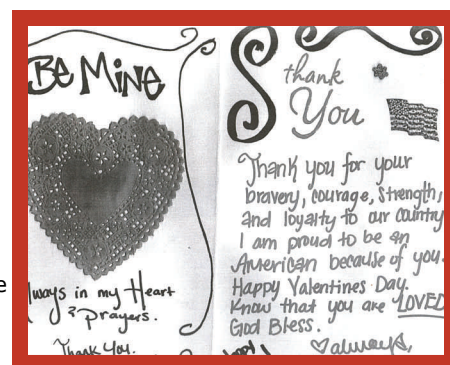 Be Mine
lways in my Heart
& Prayers.
Thank You.
thank
You
Thank you for your
bravery, courage, strength,
and loyalty to our country
I am proud to be an
American because of you.
Happy Valentines Day.
Know that you are LOVED
God Bless.
♡always,
e